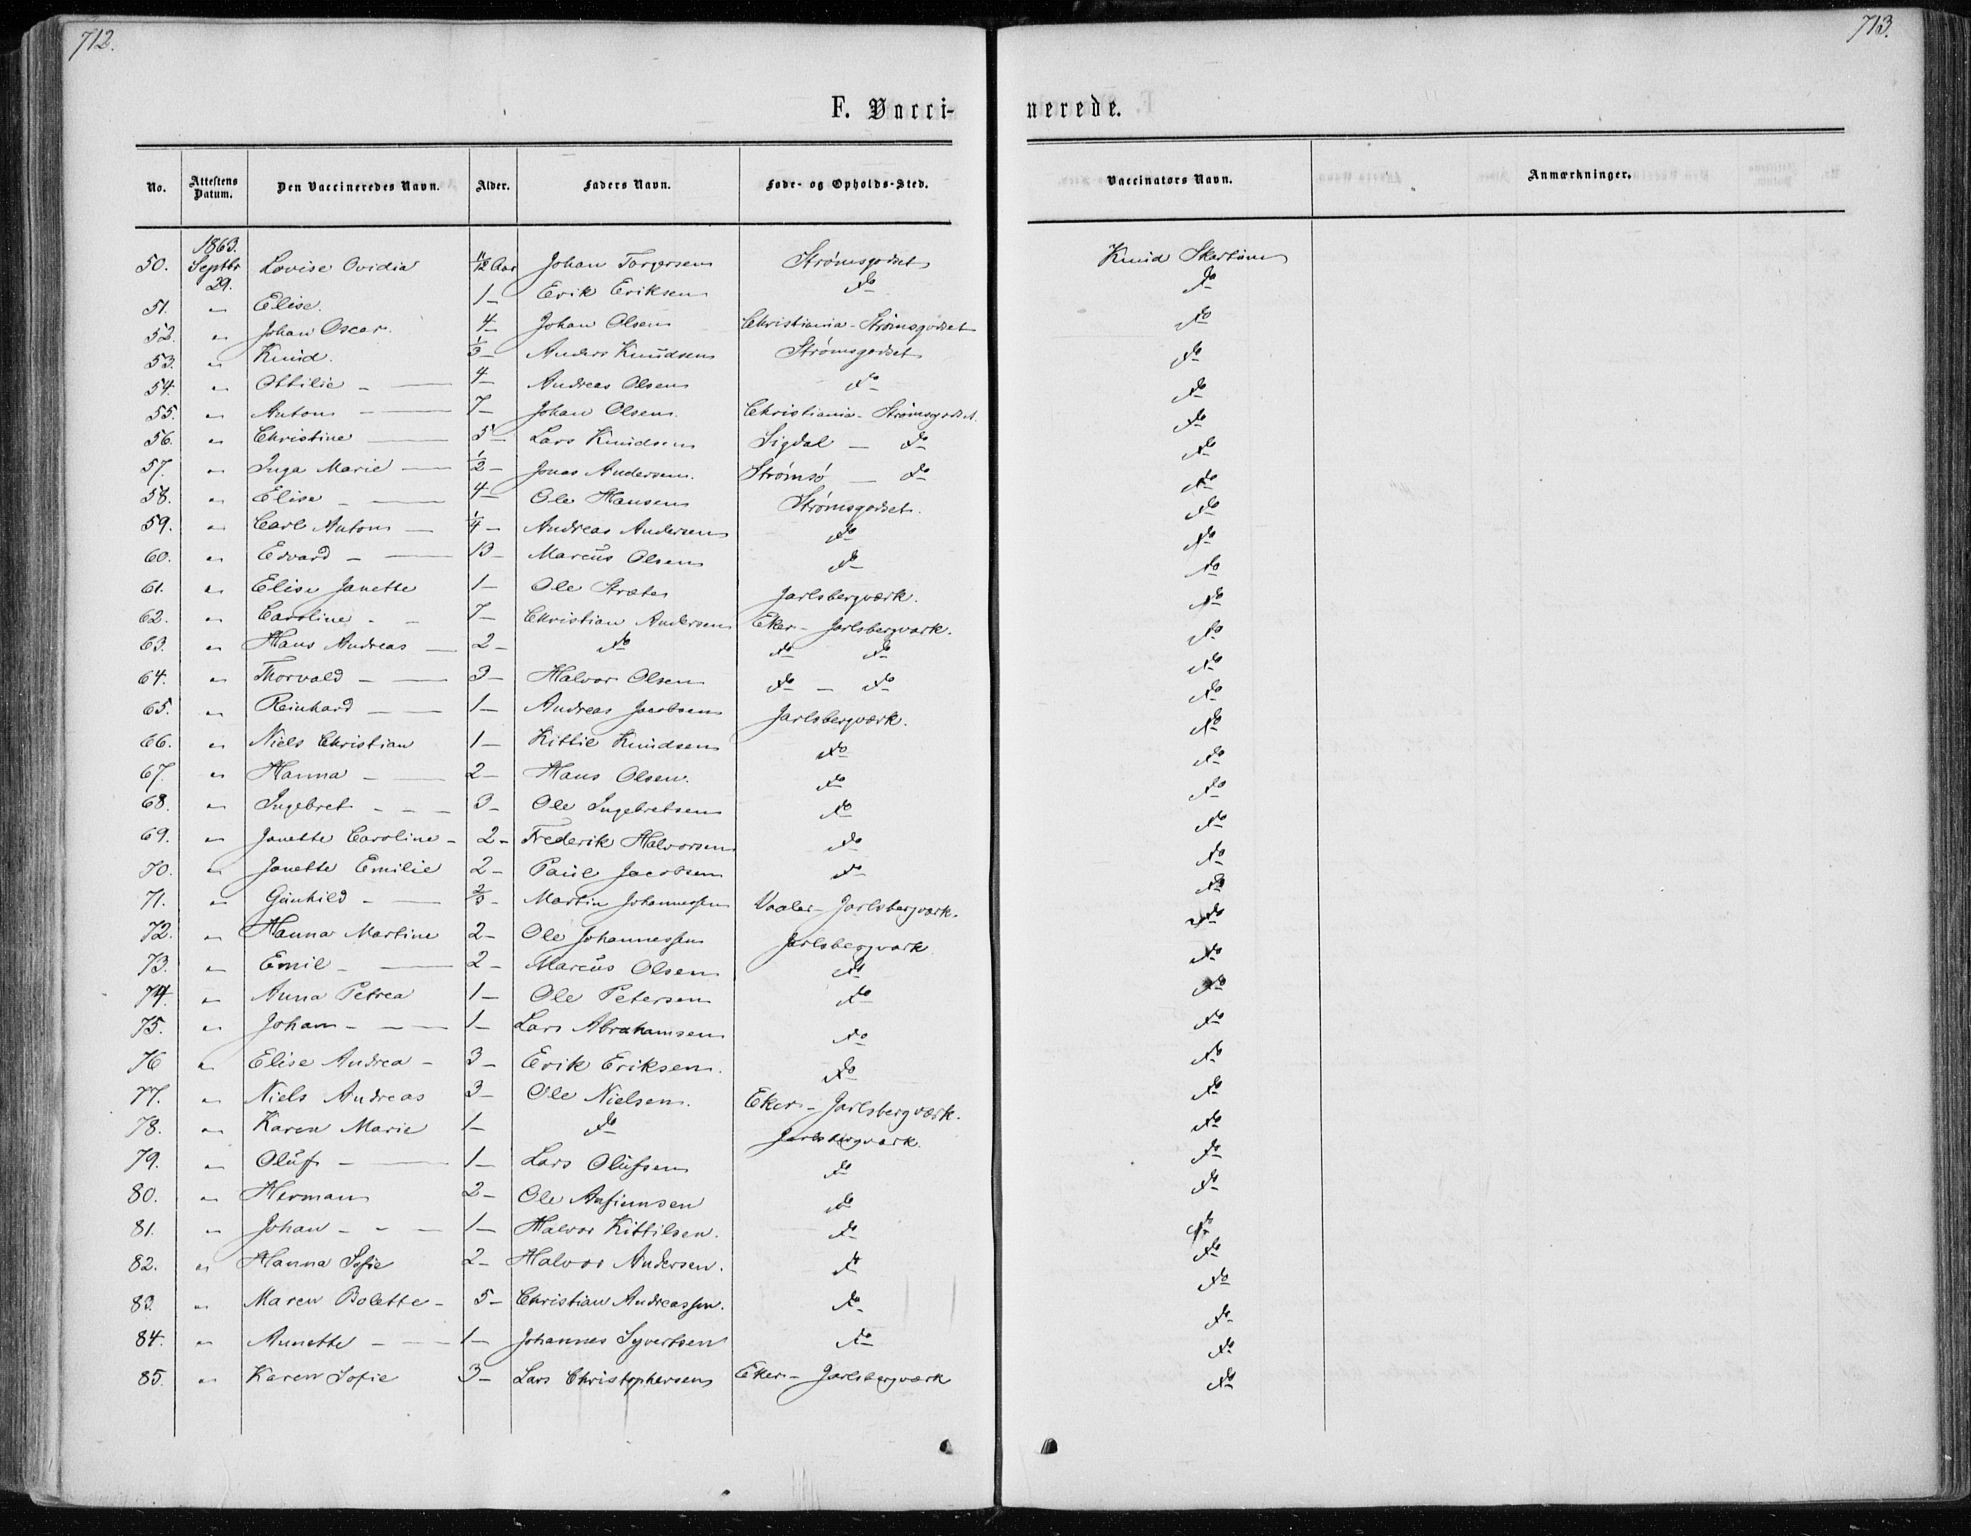 712.
713.
F. Vacci-
nerede.
No. Attestens Datum. Den Vaccineredes Navn. Alder. Faders Navn. Føde- og Opholds-Sted. Vaccinators Navn. Anmærkninger.
1863.
50. Septbr 29. Lovise Ovidia 11/12 Aar Johan Torgersen Strømsgodset Knud
51. " Elise. 1 – Erik Eriksen do do
52. " Johan Oscar. 4 – Johan Olsen Christiania - Strømsgodset do
53. " Knud. 1/3 – Anders Knudsen Strømsgodset do
54. " Ottilie – — 4 – Andreas Olsen do do
55. " Anton – — 7 – Johan Olsen. Christiania - Strømsgodset. do
56. " Christine — 5 – Lars Knudsen Sigdal – do do
57. " Inga Marie — 1/2 – Jonas Andersen. Strømsø – do do
58. " Elise – — 4 – Ole Hansen Strømsgodset. do
59. " Carl Anton — 1/4 – Andreas Andersen do do
60. " Edvard – — 13 – Marcus Olsen do do
61. " Elise Janette 1 – Ole Stræte Jarlsbergværk. do
62. " Caroline - - 7 – Christian Andersen Eker - Jarlsbergværk. do
63. " Hans Andreas — 2 – do do do do
64. " Thorvald – — 3 – Halvor Olsen do – do do
65. " Reinhard – — 1 – Andreas Jacobsen Jarlsbergværk. do
66. " Niels Christian 1 – Kittil Knudsen do do
67. " Hanna – — 2 – Hans Olsen. do do
68. " Ingebret - - – 3 – Ole Ingebretsen do do
69. " Janette Caroline – 2 – Frederik Halvorsen do do
70. " Janette Emilie 2 – Paul Jacobsen do do
71. " Gunhild – — 2/3 – Martin Johannessen Vaaler - Jarlsbergværk. do
72. " Hanna Martine 2 – Ole Johannessen Jarlsbergværk. do
73. " Emil – — 2 – Marcus Olsen do do
74. " Anna Petrea 1 – Ole Petersen do do
75. " Johan – – — 1 – Lars Abrahamsen do do
76 " Elise Andrea – 3 – Erik Eriksen. do do
77. " Niels Andreas 3 – Ole Nielsen. Eker - Jarlsbergværk. do
78. " Karen Marie 1 – do Jarlsbergværk. do
79. " Oluf – — 1 – Lars Olufsen do do
80. " Herman 2 – Ole Anfinnsen do do
81. " Johan – - – 1 – Halvor Kittilsen. do do
82. " Hanna Sofie 2 – Halvor Andersen. do do
83. " Maren Bolette – 5 – Christian Andreassen. do do
84. " Annette – — 1 – Johannes Syvertsen do do
85. " Karen Sofie 3 – Lars Christophersen Eker - Jarlsbergværk do